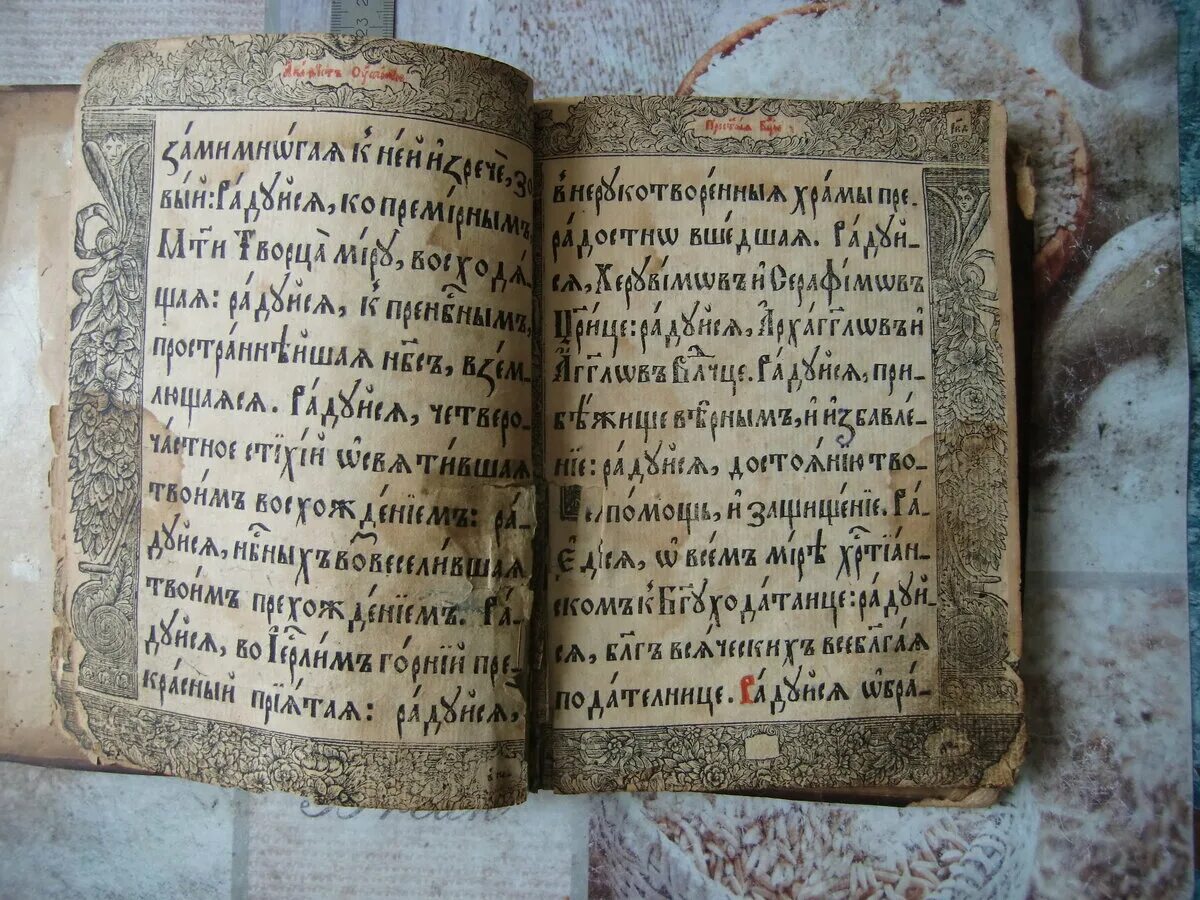 Акаѳістъ Оуспенію
зами мнѡгая к̾ не́й и҆зрече́, зо
вы́й: Ра́дꙋйся, ко премі́рнымъ
Мт҃и Творца̀ мі́рꙋ, восходѧ́-
щая: ра́дꙋйся, к̾ пренбⷭ҇нымъ,
простра́ннѣйшая нб҃съ, взе́м-
лющаяся. Ра́дꙋйся, четверо-
ча́стное стїхі́й ѡ҆свѧти́вшая
твои́мъ восхожде́нїемъ: ра́-
дꙋйся, нбⷭ҇ныхъ возвесели́вшая
твои́мъ прехожде́нїемъ. Ра́-
дꙋйся, во І҆ерⷭ҇ли́мъ го́рнїй пре-
кра́сный прїѧ́тая: ра́дꙋйся,
Прест҃ыя Бц҃ы
в̾ нерꙋкотворе́нныя хра́мы пре-
ра́достнѡ вше́дшая. Ра́дꙋй-
ся, Херꙋві́мѡвъ и҆ Серафі́мѡвъ
Цр҃и́це: ра́дꙋйся, А҆рха́гг҃лѡвъ и҆
А҆́гг҃лѡвъ Влⷣчце. Ра́дꙋйся, при-
бѣ́жище вѣ̑рнымъ, и҆ и҆збавле́-
нїе: ра́дꙋйся, достоѧ́нїю тво-
по́мощь, и҆ защище́нїе. Ра́-
ся, ѡ҆ все́мъ мі́рѣ хрⷭ҇тїа́н-
скомъ к̾ Бг҃ꙋ хода́таице: ра́дꙋй-
ся, бл҃гъ всѧ́ческихъ всебл҃га́я
пода́телнице. Ра́дꙋйся ѡ҆бра́-